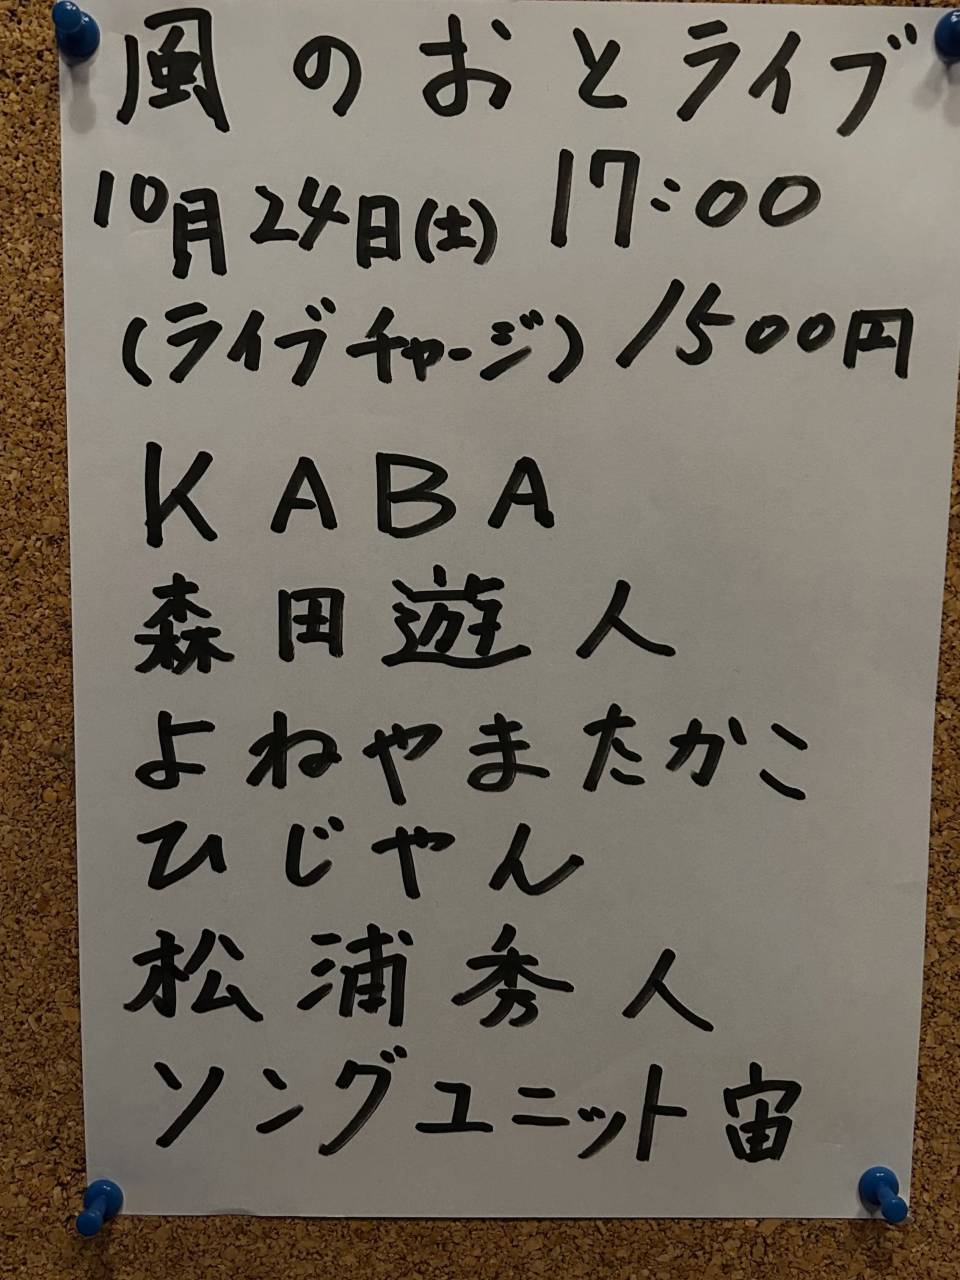 風のおとライブ
10月24日(土) 17:00
(ライブチャージ) 1500円
KABA
森田遊人
よねやまたかこ
ひじゃん
松浦秀人
ソングユニット宙